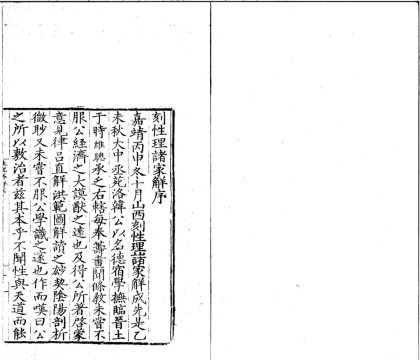 刻性理諸家解序
嘉靖丙申冬十月山西刻性理諸家解成先是乙
未秋大中丞苑洛韓公以名德宿學撫臨晉土
于時維聰承乏右轄每奉籌畫聞條敎未嘗不
服公經濟之大謨猷之遠也及得公所著啓蒙
意見律呂直解洪範圖解讀之妙契陰陽剖析
微眇又未嘗不服公學識之邃也作而嘆曰公
之所以敷治者兹其本乎不聞性與天道而能